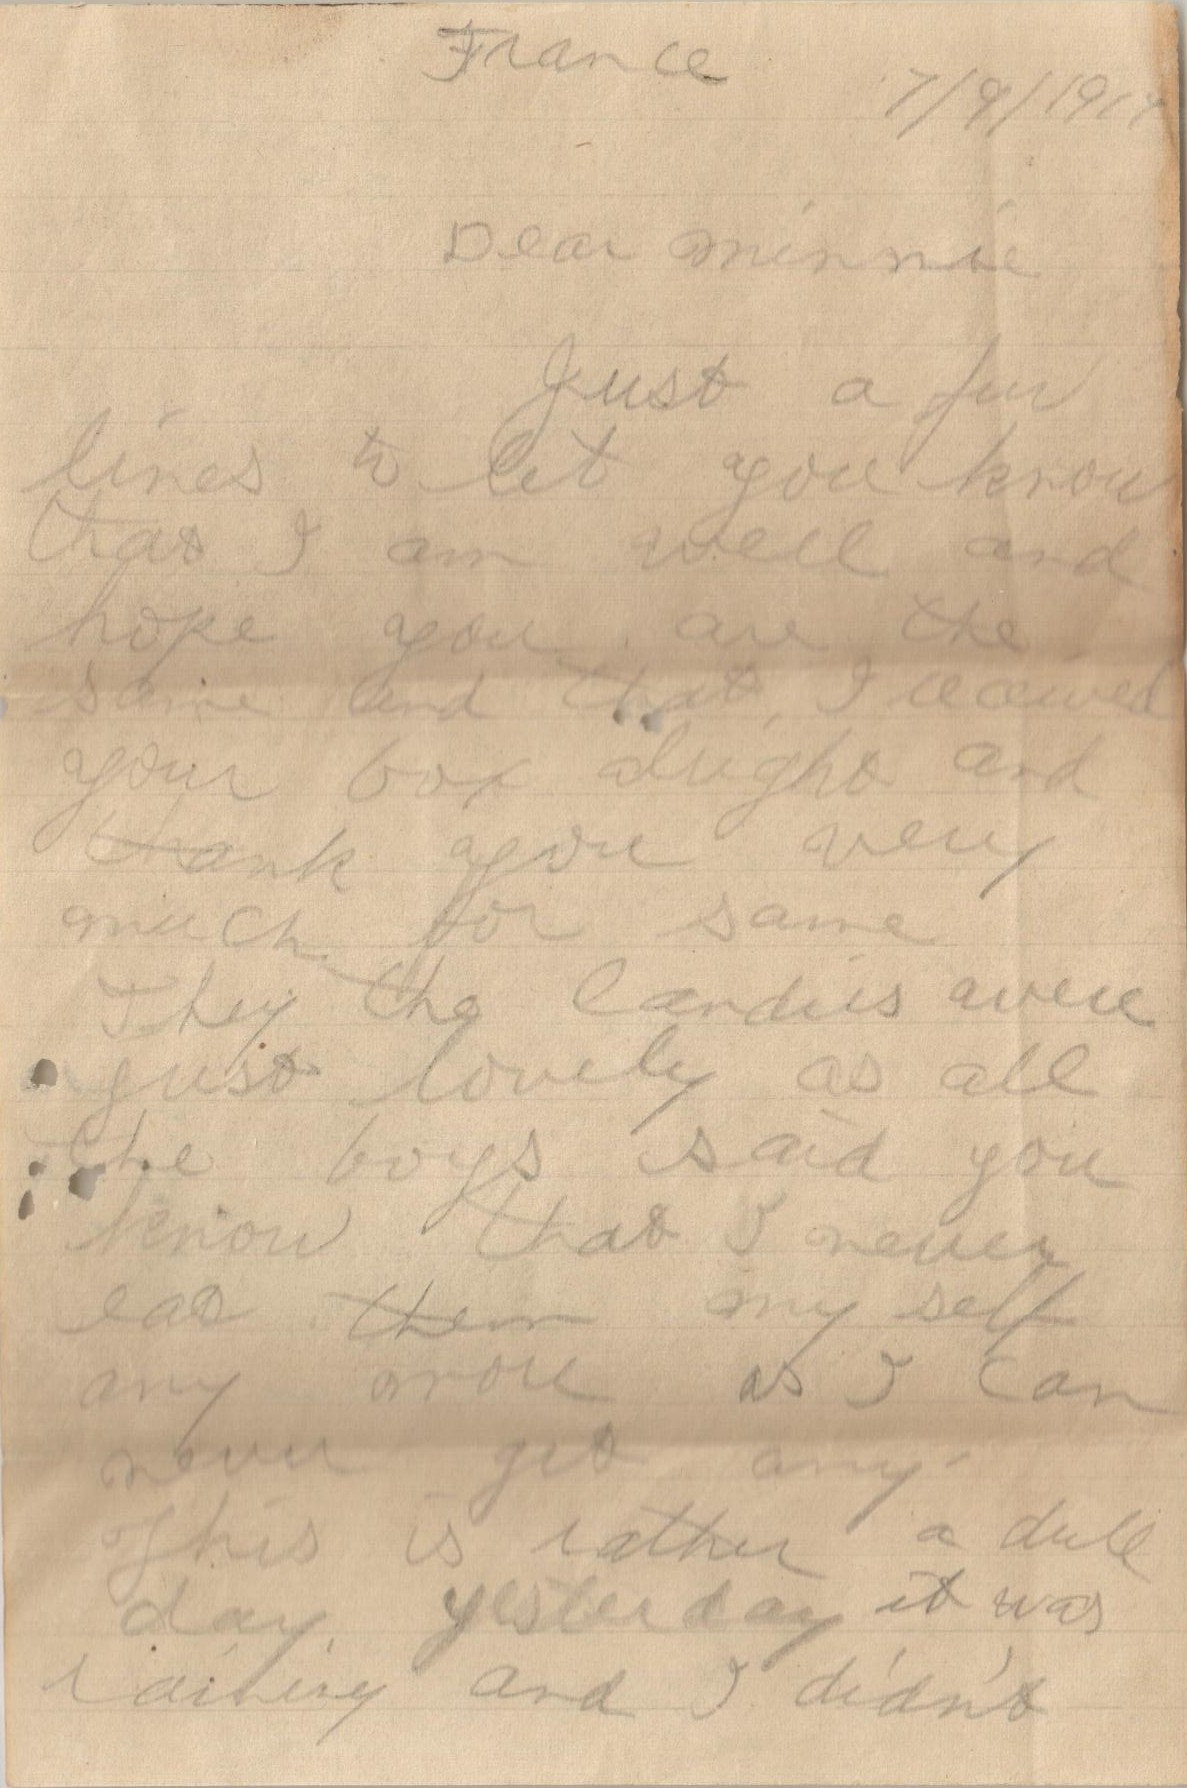 France
7/9/1917
Dear Minnie
Just a few
lines to let you know
that I am well and
hope you are the
same and that I received
your box alright and
thank you very
much for same
They the Candies were
just lovely as all
the boys said you
know that I never
eat them my self
any more as I can
never get any.
This is rather a dull
day. yesterday it was
raining and I didn't